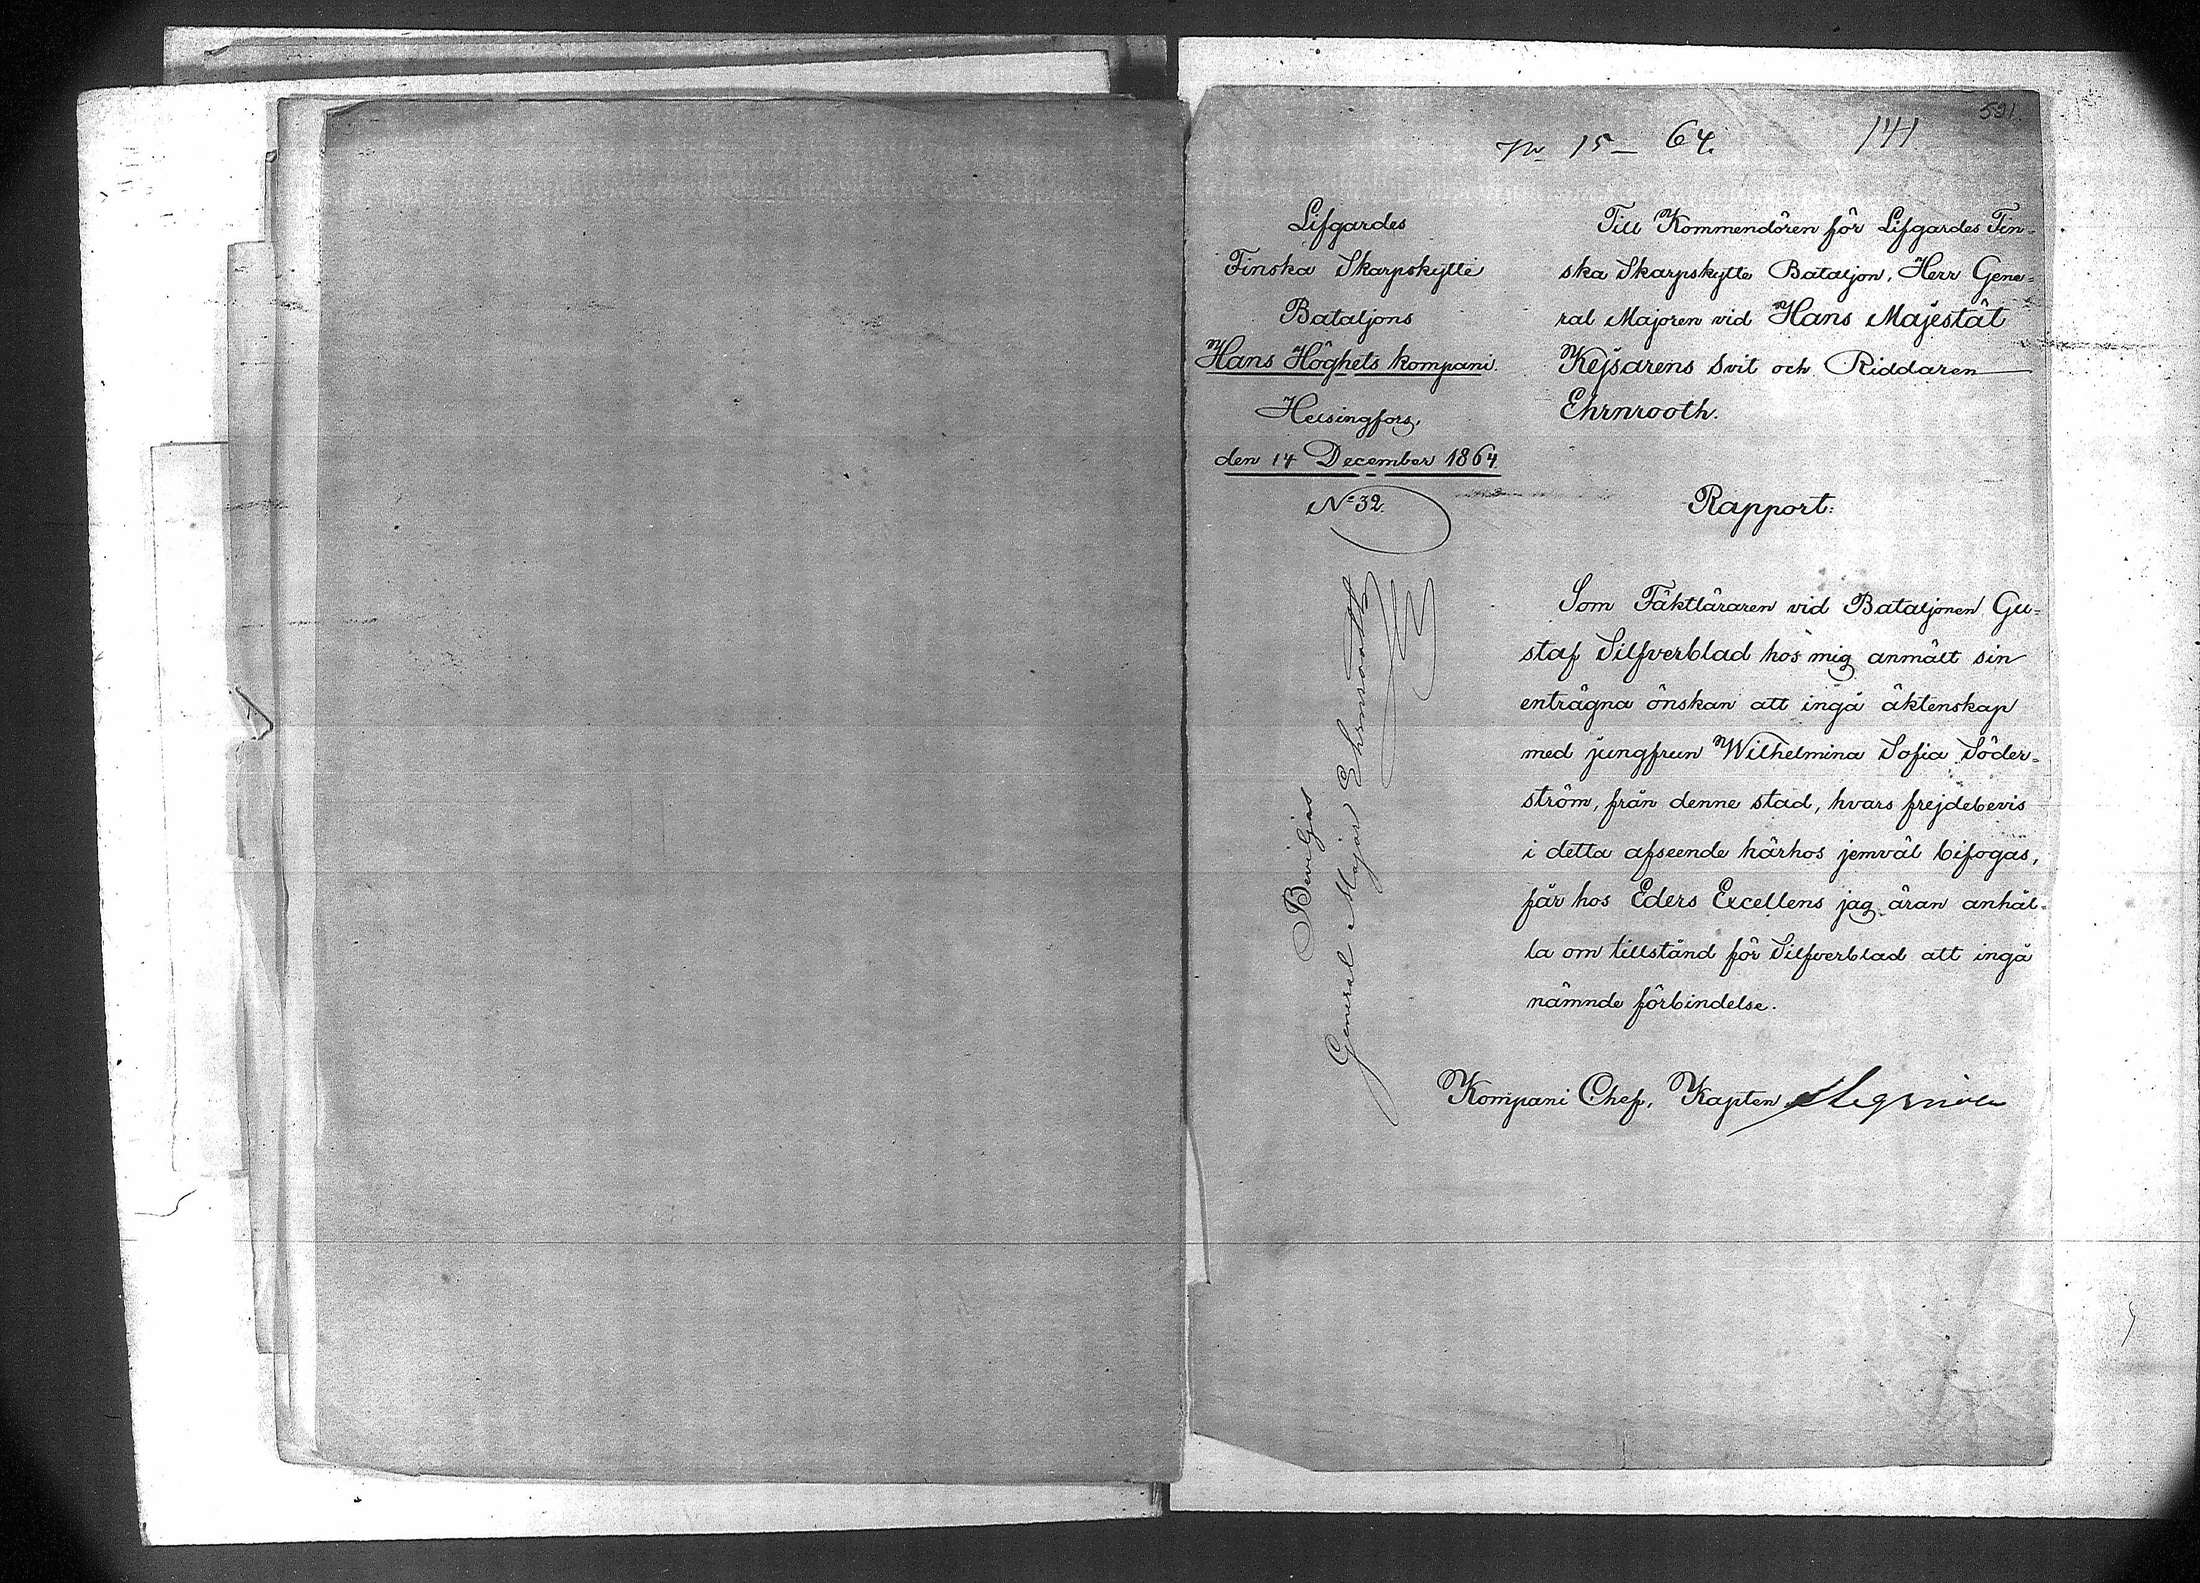 591.
No 15 – 64. 141
Lifgardes
Finska Skarpskytte
Bataljons
Hans Höghets kompani.
Helsingfors,
den 14 December 1864.
No 32.
Till Kommendören för Lifgardes Fin-
ska Skarpskytte Bataljon, Herr Gene-
ral Majoren vid Hans Majestät
Kejsarens Svit och Riddaren
Ehrnrooth.
Rapport:
Som Fäktläraren vid Bataljonen Gu-
staf Silfverblad hos mig anmält sin
enträgna önskan att ingå äktenskap
med jungfrun Wilhelmina Sofia Söder-
ström, från denne stad, hvars frejdebevis
i detta afseende härhos jemväl bifogas,
får hos Eders Excellens jag äran anhål-
la om tillstånd för Silfverblad att ingå
nämnde förbindelse.
Kompani Chef, Kapten
Beviljas
General Major Ehrnrooth